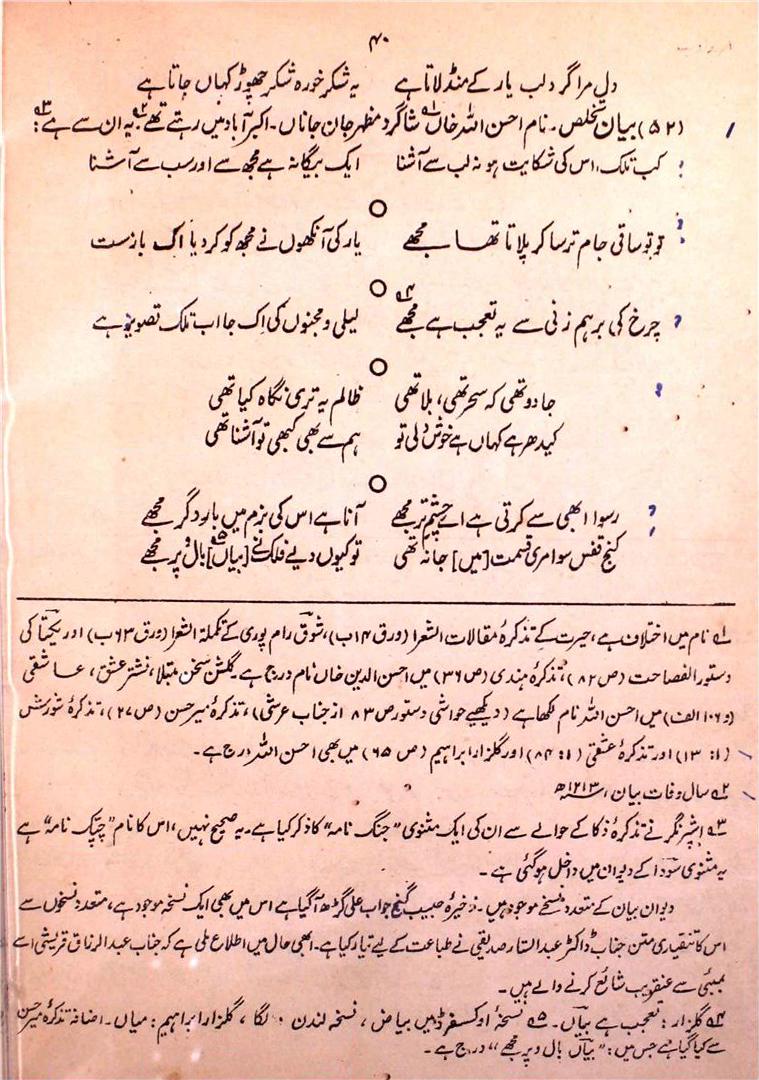 ۴۰
دل مرا گرد لب یار کے منڈلاتا ہے یہ شکر خورہ شکر چھوڑ کہاں جاتا ہے
(۵۲) بیان تخلص۔ نام احسن اللہ خاں ؎۱ شاگرد مظہر جان جاناں۔ اکبر آباد میں رہتے تھے ؎۲ یہ ان سے ہے ؎۳:
کب تلک، اس کی شکایت ہو نہ لب سے آشنا ایک بیگانہ ہے مجھ سے اور سب سے آشنا
تو تو ساقی جام ترسا کر پلاتا تھا مجھے یار کی آنکھوں نے مجھ کو کر دیا اک بار مست
چرخ کی برہم زنی سے یہ تعجب ہے مجھے ؎۴ لیلی و مجنوں کی اک جا اب تلک تصویر ہے
جادو تھی کہ سحر تھی، بلا تھی ظالم یہ تری نگاہ کیا تھی
کیدھر ہے کہاں ہے خوش دلی تو ہم سے بھی کبھی تو آشنا تھی
رسوا ابھی سے کرتی ہے اے چشم تر مجھے آنا ہے اس کی بزم میں بار دگر مجھے
کنج قفس سوا مری قسمت [میں] جا نہ تھی تو کیوں دیے فلک نے [بیاں] ؎۵ بال و پر مجھے
؎۱ نام میں اختلاف ہے، حیرت کے تذکرۂ مقالات الشعرا (ورق ۱۴ ب)، شوق رام پوری کے تکملۃ الشعرا (ورق ۶۳ ب) اور یکتا کی
دستور الفصاحت (ص ۸۲)، تذکرۂ ہندی (ص ۳۶) میں احسن الدین خاں نام درج ہے۔ گلشن سخن مبتلا، نشتر عشق، عاشقی
(و ۱۰۶ الف) میں احسن اللہ نام لکھا ہے (دیکھیے حواشی دستور ص ۸۳ از جناب عرشی)، تذکرۂ میر حسن (ص ۲۷)، تذکرۂ شورش
(۱: ۱۳) اور تذکرۂ عشقی (۱: ۸۴) اور گلزار ابراہیم (ص ۶۵) میں بھی احسن اللہ درج ہے۔
؎۲ سال وفات بیان، ۱۲۱۳ھ
؎۳ اشپرنگر نے تذکرۂ ذکا کے حوالے سے ان کی ایک مثنوی "جنگ نامہ" کا ذکر کیا ہے۔ یہ صحیح نہیں، اس کا نام "چپک نامہ" ہے
یہ مثنوی سودا کے دیوان میں داخل ہو گئی ہے۔
دیوان بیان کے متعدد نسخے موجود ہیں۔ ذخیرۂ حبیب گنج جو اب علی گڑھ آگیا ہے اس میں بھی ایک نسخہ موجود ہے، متعدد نسخوں سے
اس کا تنقیدی متن جناب ڈاکٹر عبدالستار صدیقی نے طباعت کے لیے تیار کیا ہے۔ ابھی حال میں اطلاع ملی ہے کہ جناب عبدالرزاق قریشی اسے
بمبئی سے عنقریب شائع کرنے والے ہیں۔
؎۴ گلزار: تعجب ہے بیاں۔ ؎۵ نسخۂ اوکسفرڈ میں بیاض، نسخہ لندن: لگا، گلزار ابراہیم: میاں۔ اضافہ تذکرۂ میر حسن
سے کیا گیا ہے جس میں: "بیاں بال و پر مجھے" درج ہے۔